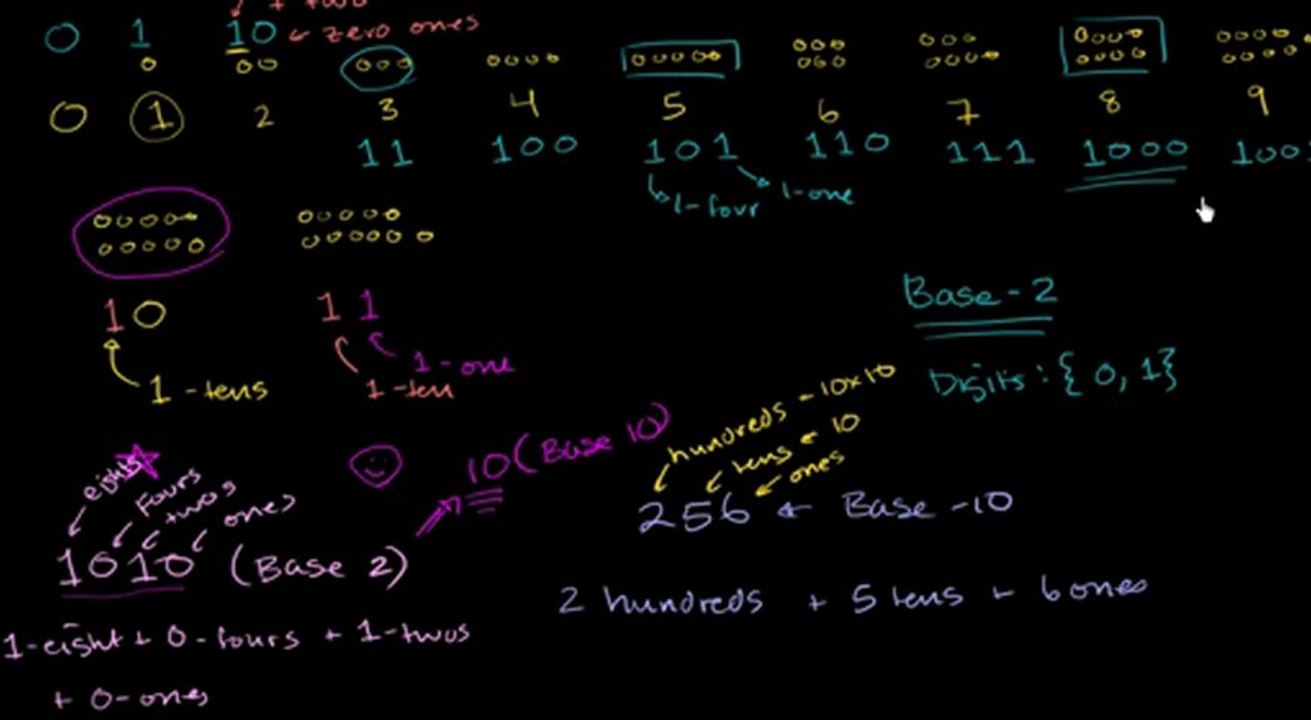 0 1 10 ← zero ones
0 1 2 3 4 5 6 7 8 9
11 100 101 110 111 1000 100
1-four 1-one
10 11
1-tens 1-ten 1-one
Base-2
Digits: {0, 1}
eights fours twos ones
1010 (Base 2)
10 (Base 10)
1-eight + 0-fours + 1-twos
+ 0-ones
hundreds - 10x10
tens ← 10
ones
256 ← Base-10
2 hundreds + 5 tens + 6 ones